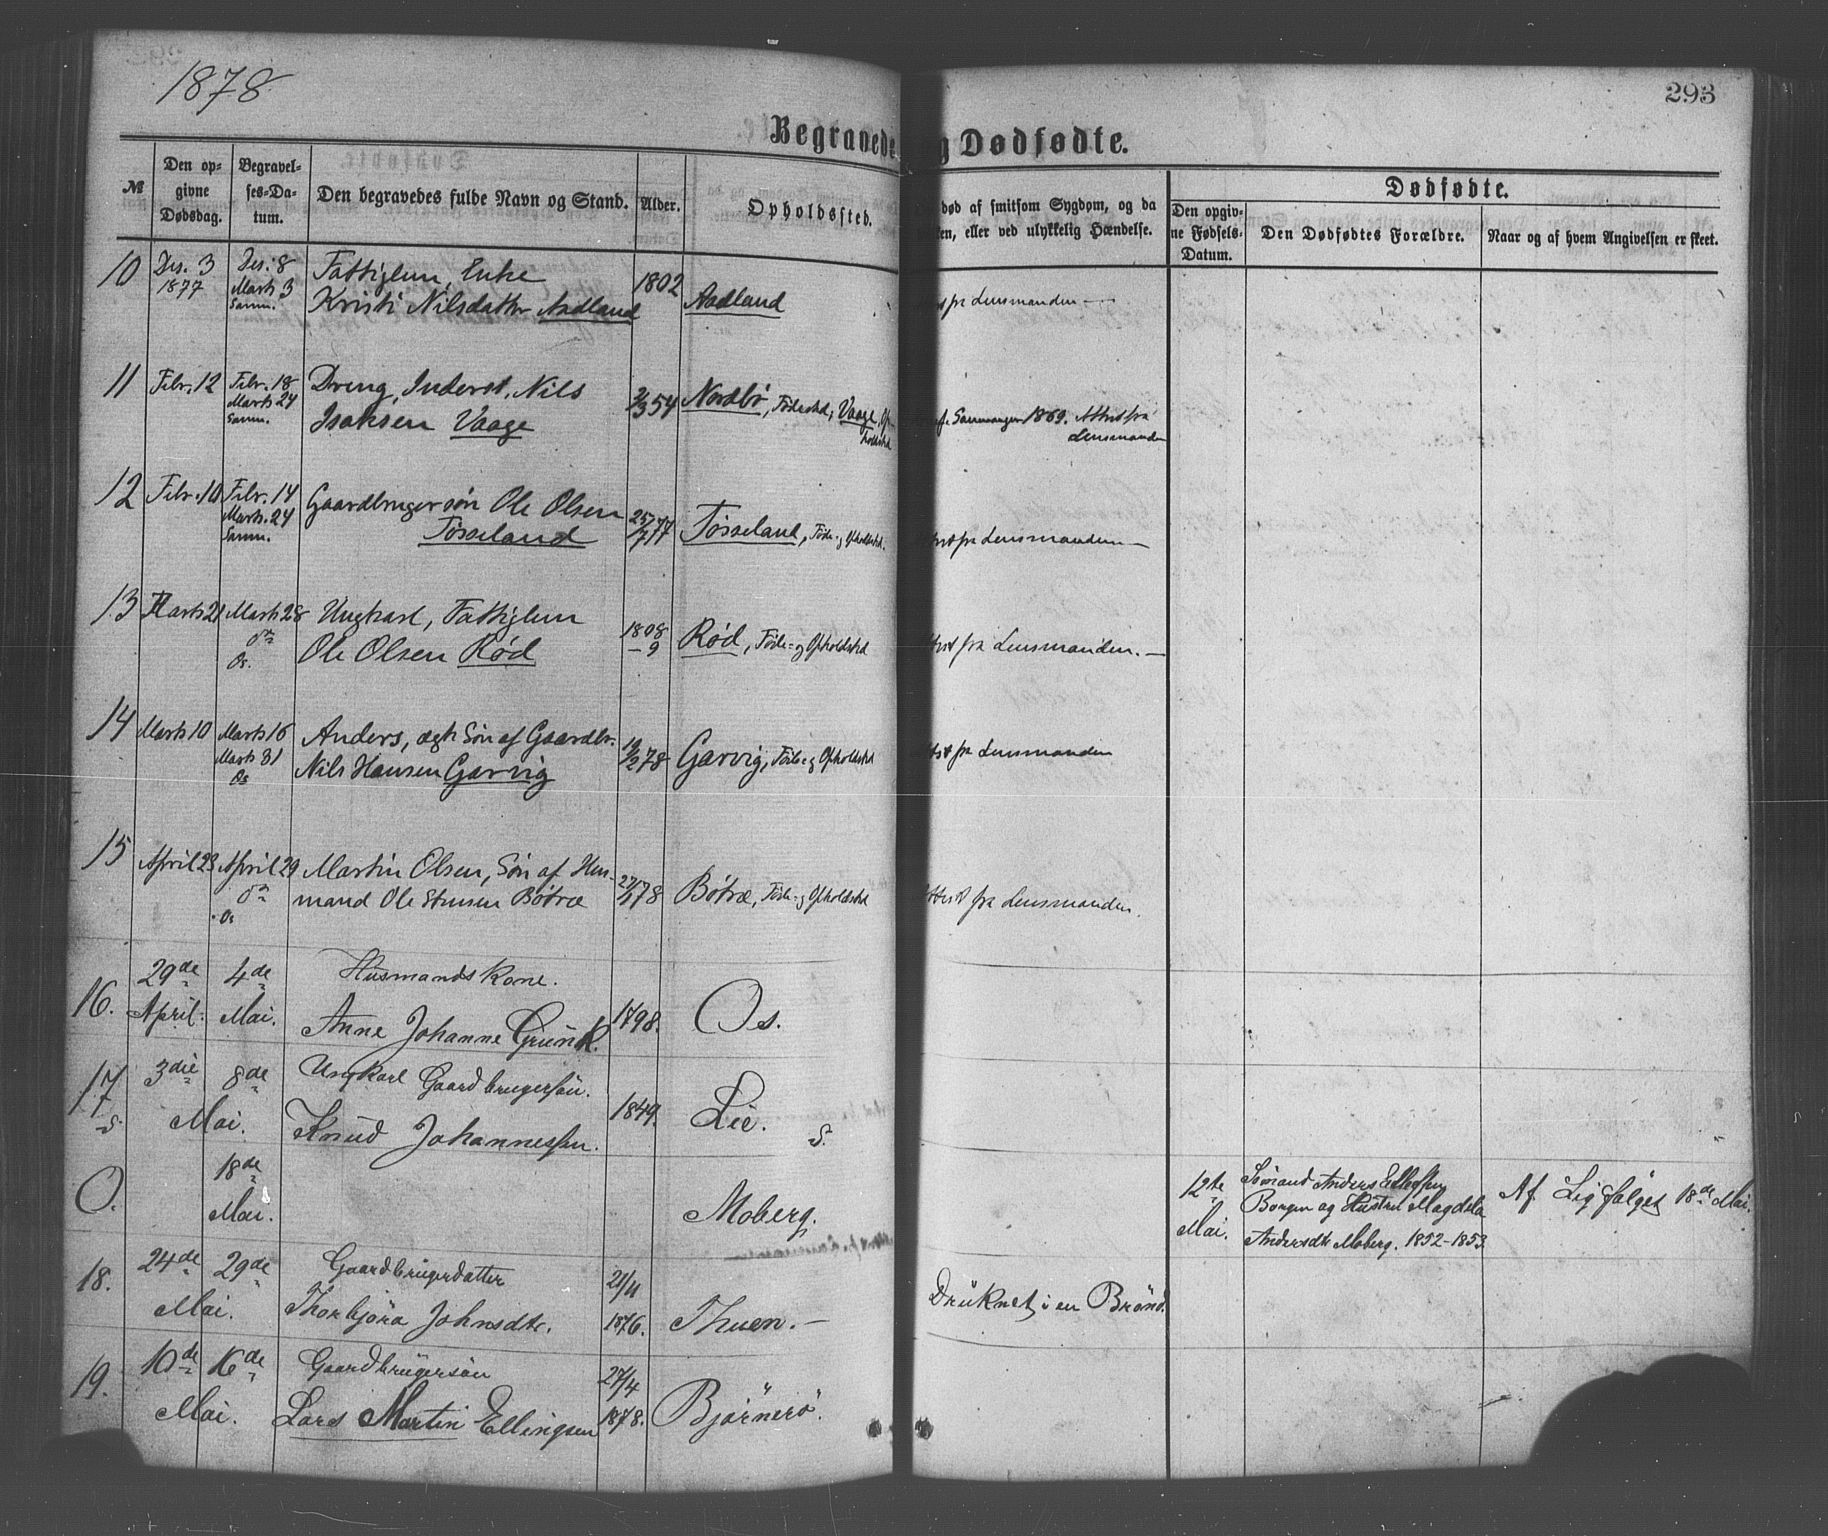 1878
293
Begravede
g Dødfødte.
№
Den op-
givne
Dødsdag.
Begravel-
ses-Da-
tum.
Den begravedes fulde Navn og Stand.
Alder.
Opholdssted.
død af smitsom Sygdom, og da
ken, eller ved ulykkelig Hændelse.
Dødfødte.
Den opgiv-
ne Fødsels-
Datum.
Den Dødfødtes Forældre.
Naar og af hvem Angivelsen er skeet.
10
Des. 3
1877
Des. 8
Marts 3
Samn.
Fattiglem, Enke
Kristi Nilsdatter Aadland
1802
Aadland
fra Lensmanden —
11
Febr. 12
Febr. 18
Marts 24
Samn.
Dreng, Inderst, Nils
Isaksen Vaage
2/3 54
Nordbø, Fødested; Vaage, Op-
holdsted
Samnanger 1869. Attest fra
Lensmanden
12
Febr. 10
Febr. 14
Marts. 24
Samn.
Gaardbrugersøn Ole Olsen
Tøsseland
25/7 77
Tøsseland, Føde- og Opholdsted.
fra Lensmanden —
13
Marts 21
Marts 28
Os.
Ungkarl, Fattiglem
Ole Olsen Rød
1808
– 9
Rød, Føde- og Opholdsted
fra Lensmanden. —
14
Marts 10
Marts 16
Marts 31
Os
Anders, ægte Søn af Gaardbr.
Nils Hansen Garvig
19/2 78
Garvig, Føde- og Opholdsted
fra Lensmanden
15
April 23
April 29
Os
Martin Olsen, Søn af Hus-
mand Ole Stensen Bøtræ
27/1 78
Bøtræ, Føde- og Opholdsted
fra Lensmanden.
16.
29de
April.
4de
Mai.
Husmands Kone.
Anne Johanne Grünk.
1798.
Os.
17
S.
3die
8de
Mai.
Ungkarl Gaardbrugersøn.
Knud Johannessen.
1849.
Lie.
S.
O.
18de
Mai.
Moberg.
12te
Mai.
Sømand Anders Ellefsen
Borgen og Hustru Magdela
Andersdtr Moberg. 1852–1853
Af Ligfølget 18de Mai.
18.
24de
29de
Mai.
Gaardbrugerdatter
Thorbjøra Johnsdtr.
21/11
1876.
Thuen. —
Drüknet i en Brønd.
19.
10de
16de
Mai.
Gaardbrügersøn
Lars Martin Ellingsen
27/4
1878.
Bjørnerö.